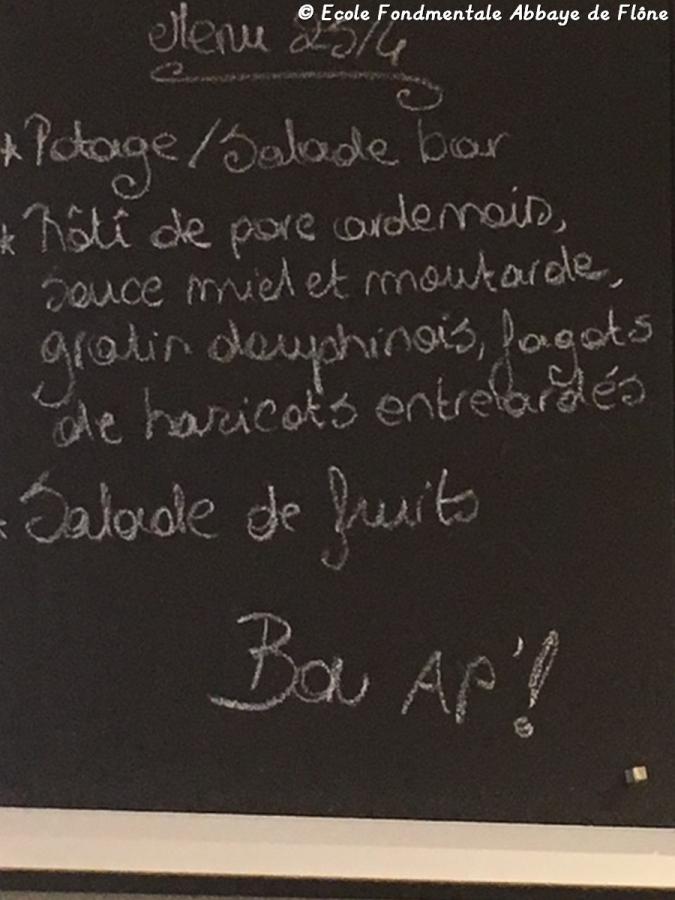 © Ecole Fondmentale Abbaye de Flône
Menu 25/4
* Potage/Salade bar
* Rôti de porc ardennais,
sauce miel et moutarde,
gratin dauphinois, fagots
de haricots entrelardés
* Salade de fruits
Bon AP'!